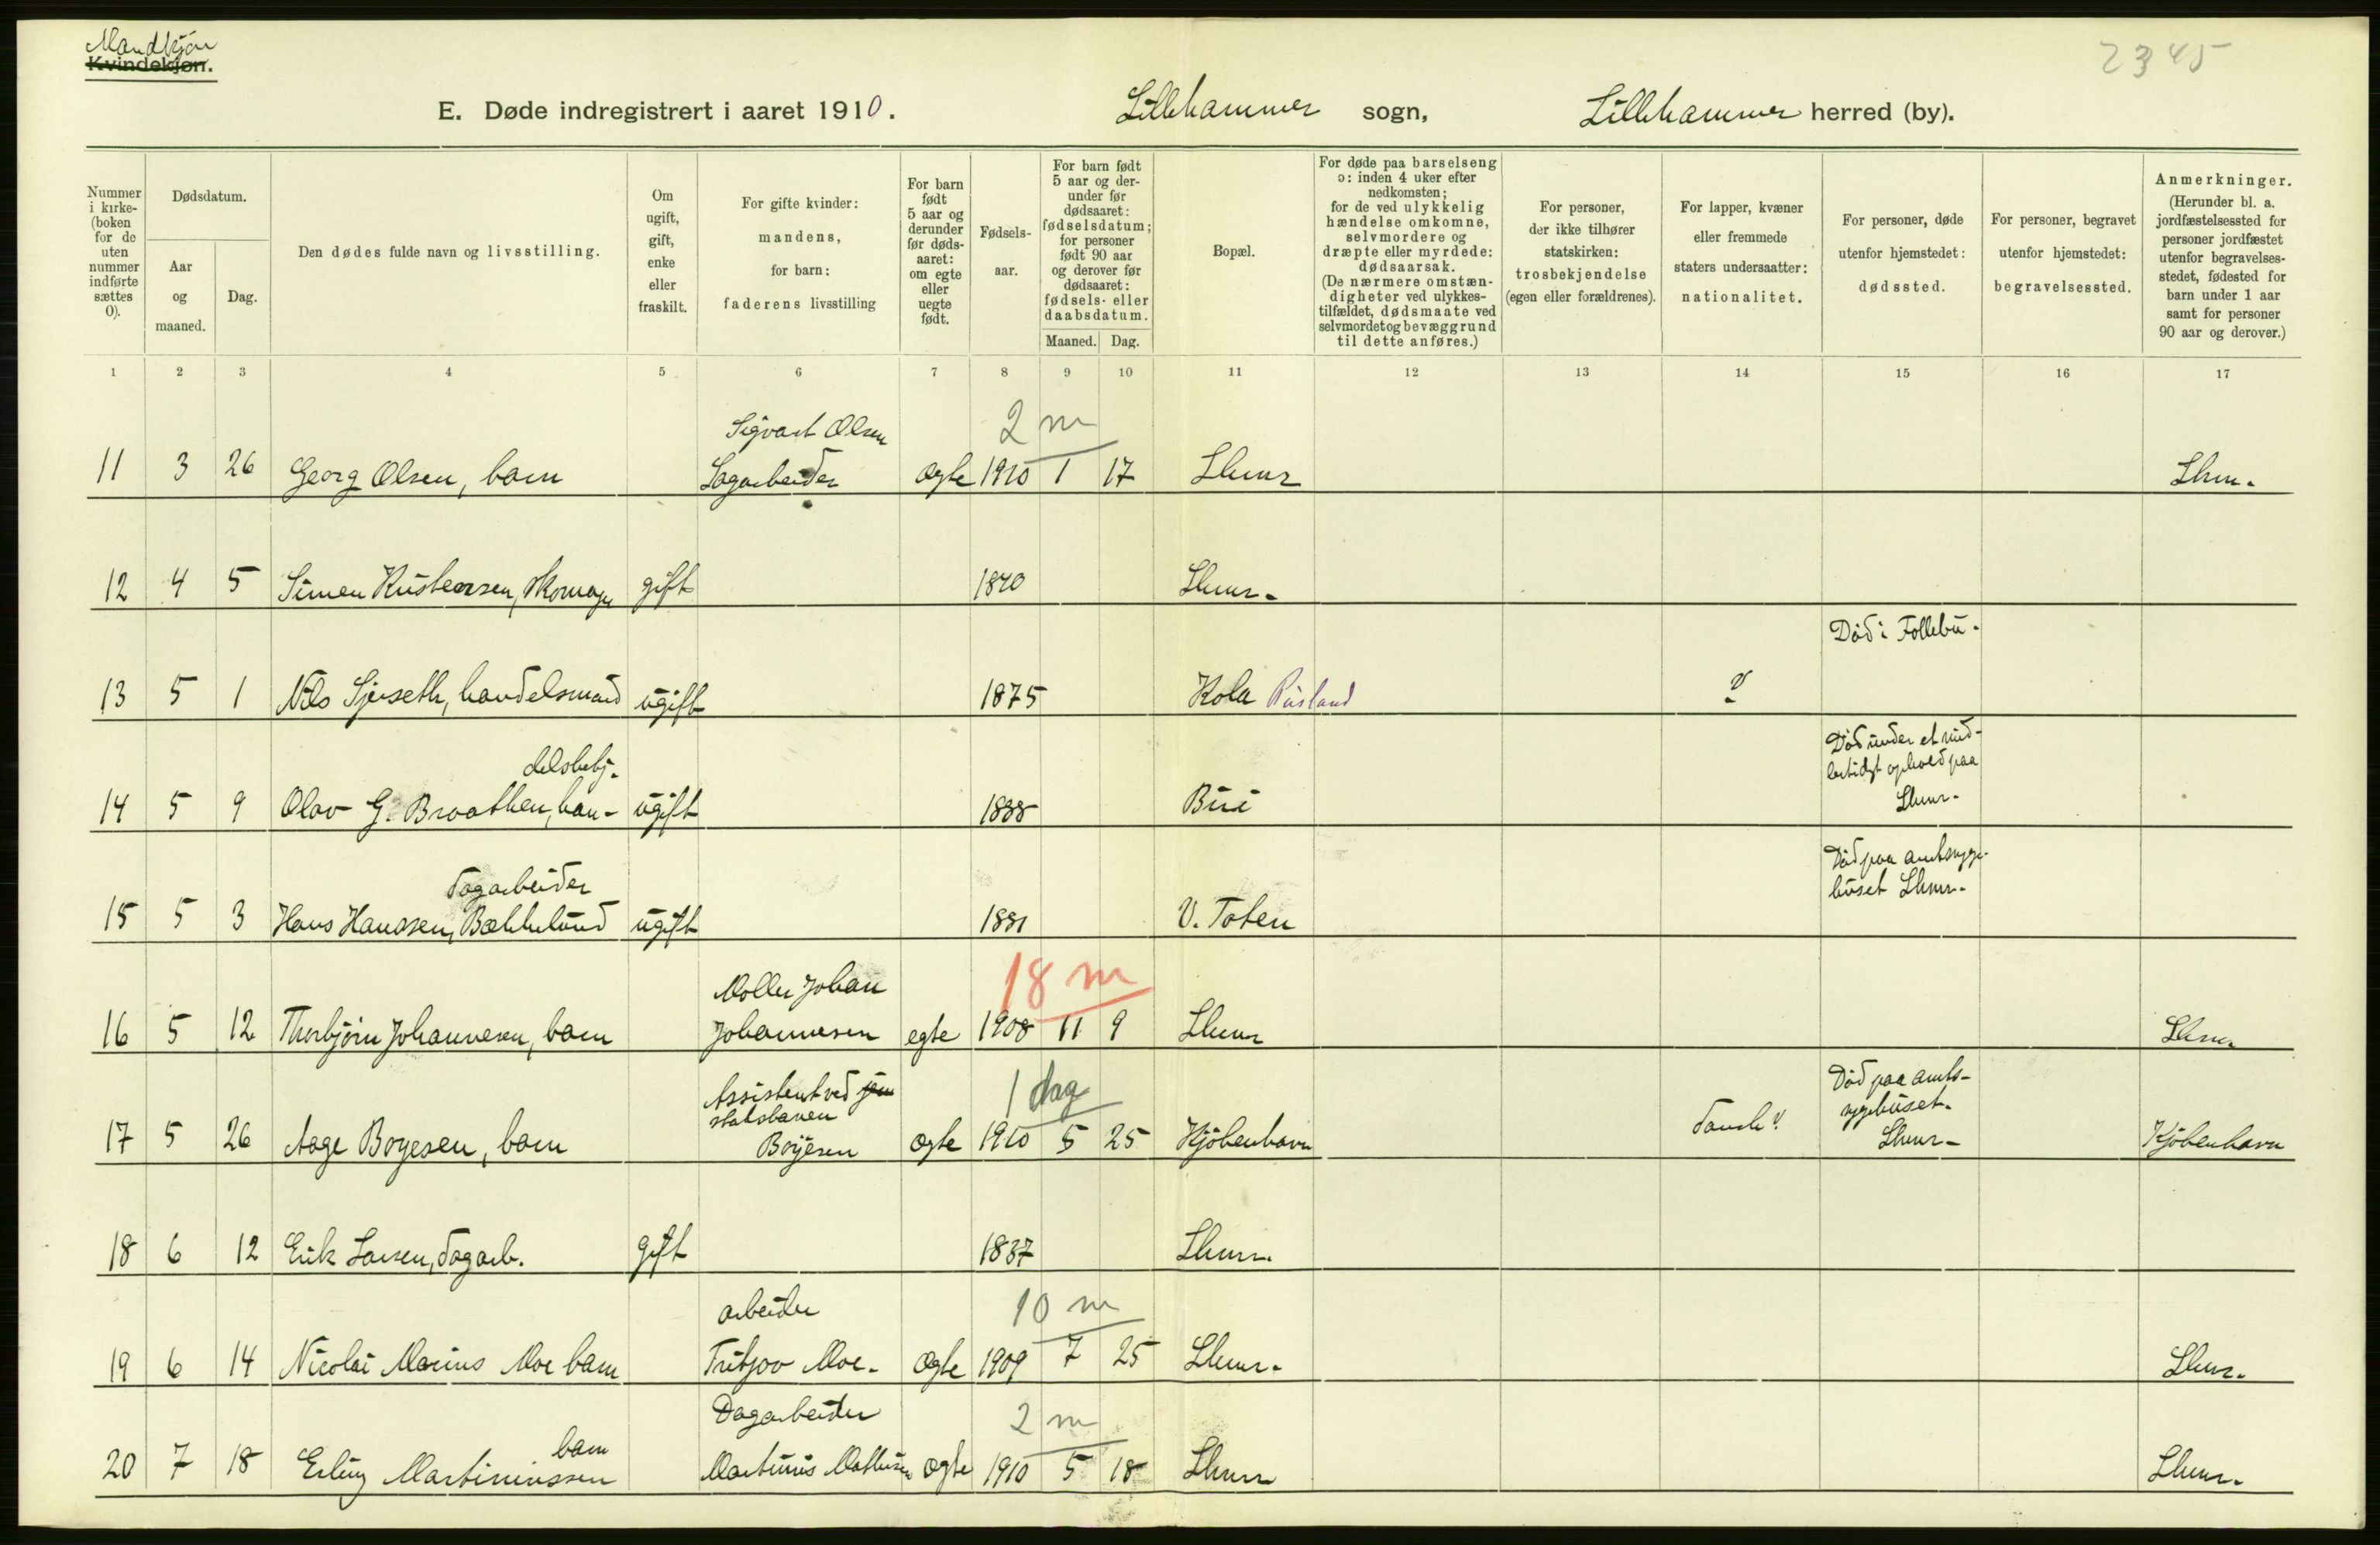 Mandkjøn
Kvindekjøn.
2345
E. Døde indregistrert i aaret 1910. Lillehammer sogn, Lillehammer herred (by).
Nummer i kirke-(boken for de uten nummer indførte sættes 0).
Dødsdatum.
Aar og maaned.
Dag.
Den dødes fulde navn og livsstilling.
Om ugift, gift, enke eller fraskilt.
For gifte kvinder: mandens, for barn: faderens livsstilling
For barn født 5 aar og derunder før døds-aaret: om egte eller uegte født.
Fødsels-aar.
For barn født 5 aar og der-under før dødsaaret: fødselsdatum; for personer født 90 aar og derover før dødsaaret: fødsels- eller daabsdatum.
Maaned. Dag.
Bopæl.
For døde paa barselseng ɔ: inden 4 uker efter nedkomsten; for de ved ulykkelig hændelse omkomne, selvmordere og dræpte eller myrdede: dødsaarsak. (De nærmere omstæn-digheter ved ulykkes-tilfældet, dødsmaate ved selvmord et og bevæggrund til dette anføres.)
For personer, der ikke tilhører statskirken: trosbekjendelse (egen eller forældrenes).
For lapper, kvæner eller fremmede staters undersaatter: nationalitet.
For personer, døde utenfor hjemstedet: dødssted.
For personer, begravet utenfor hjemstedet: begravelsessted.
Anmerkninger. (Herunder bl. a. jordfæstelsessted for personer jordfæstet utenfor begravelses-stedet, fødested for barn under 1 aar samt for personer 90 aar og derover.)
1 2 3 4 5 6 7 8 9 10 11 12 13 14 15 16 17
Sigvart Olsen 2 m
11 3 26 Georg Olsen, barn Sagarbeider ægte 1910 1 17 Lhmr Lhm.
12 4 5 Simen Kristensen, skomag gift 1840 Lhmr.
Død i Follebu.
13 5 1 Nils Sjerseth, handelsmand ugift 1875 Kola Rusland ?
delsbetj. Død under et mid-
lertidigt ophold paa
14 5 9 Olav G. Braathen, han- ugift 1888 Biri Lhmr.
Dagarbeider Død paa amtssyge-
huset Lhmr.
15 5 3 Hans Hanssen, Bækkelund ugift 1881 V. Toten
Møller Johan 18 m
16 5 12 Thorbjørn Johannesen, barn Johannesen egte 1908 11 9 Lhmr Lhmr
Assistent ved jern 1 dag Død paa amts-
statsbanen sygehuset.
17 5 26 Aage Boyesen, barn Boyesen ægte 1910 5 25 Kjøbenhavn Dansk ?. Lhmr. Kjøbenhavn
18 6 12 Erik Larsen, Dagarb. gift 1837 Lhmr.
arbeider 10 m
19 6 14 Nicolai Marius Moe barn Fritjov Moe. ægte 1909 7 25 Lhmr. Lhmr.
Dagarbeider 2 m
barn
20 7 18 Erling Martiniussen Martinius ægte 1910 5 18 Lhmr Lhmr.